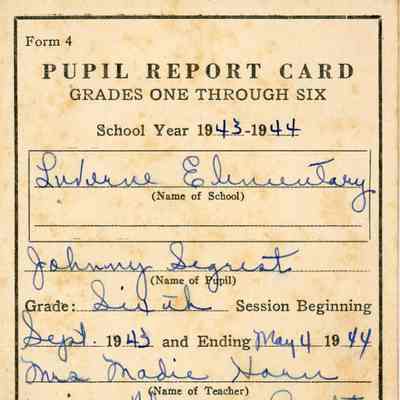 Form 4
PUPIL REPORT CARD
GRADES ONE THROUGH SIX
School Year 1943-1944
Luverne Elementary
(Name of School)
Johnny Segrest
(Name of Pupil)
Grade: Sixth Session Beginning
Sept. 1943 and Ending May 4 1944
Mrs Madie
(Name of Teacher)